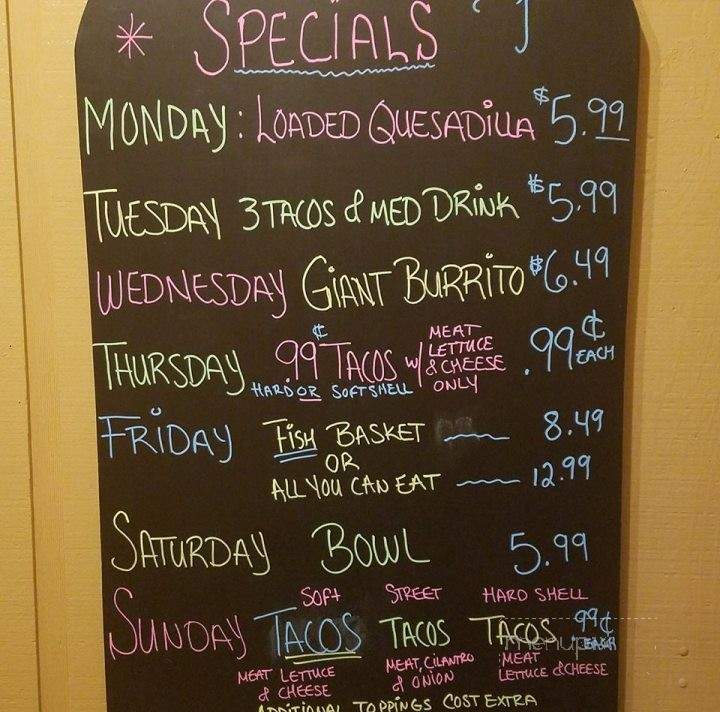 * SPECIALS
MONDAY: LOADED QUESADILLA $5.99
TUESDAY 3 TACOS & MED DRINK $5.99
WEDNESDAY GIANT BURRITO $6.49
THURSDAY 99¢ TACOS w/ MEAT LETTUCE & CHEESE ONLY .99¢ EACH
HARD OR SOFT SHELL
FRIDAY FISH BASKET 8.49
OR
ALL YOU CAN EAT 12.99
SATURDAY BOWL 5.99
SOFT STREET HARD SHELL
SUNDAY TACOS TACOS TACOS 99¢ EACH
MEAT LETTUCE & CHEESE
MEAT, CILANTRO & ONION
MEAT LETTUCE & CHEESE
ADDITIONAL TOPPINGS COST EXTRA